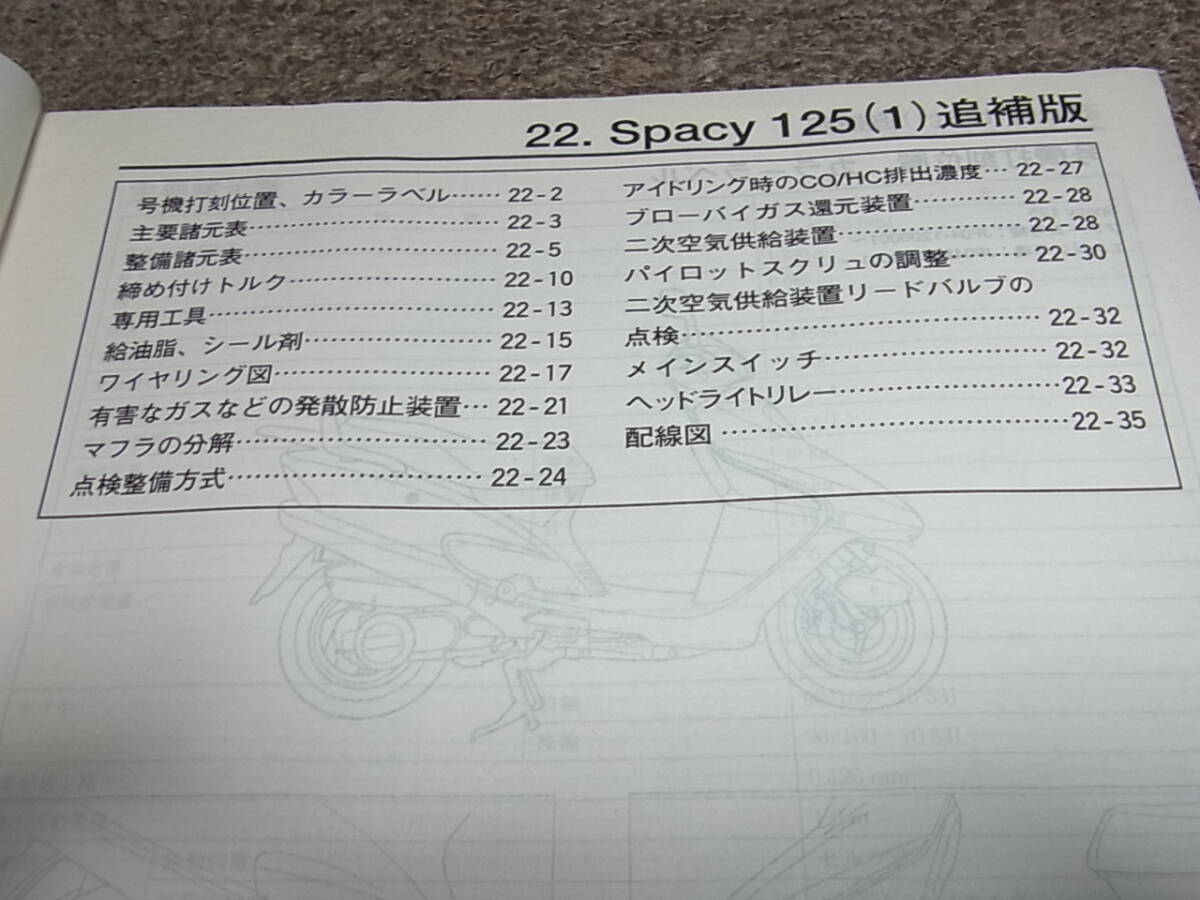 22. Spacy 125(1)追補版
号機打刻位置、カラーラベル…… 22-2
主要諸元表…………………………… 22-3
整備諸元表…………………………… 22-5
締め付けトルク……………………… 22-10
専用工具……………………………… 22-13
給油脂、シール剤…………………… 22-15
ワイヤリング図……………………… 22-17
有害なガスなどの発散防止装置… 22-21
マフラの分解………………………… 22-23
点検整備方式………………………… 22-24
アイドリング時のCO/HC排出濃度… 22-27
ブローバイガス還元装置…………… 22-28
二次空気供給装置…………………… 22-28
パイロットスクリュの調整………… 22-30
二次空気供給装置リードバルブの
点検…………………………………… 22-32
メインスイッチ……………………… 22-32
ヘッドライトリレー………………… 22-33
配線図 ………………………………… 22-35